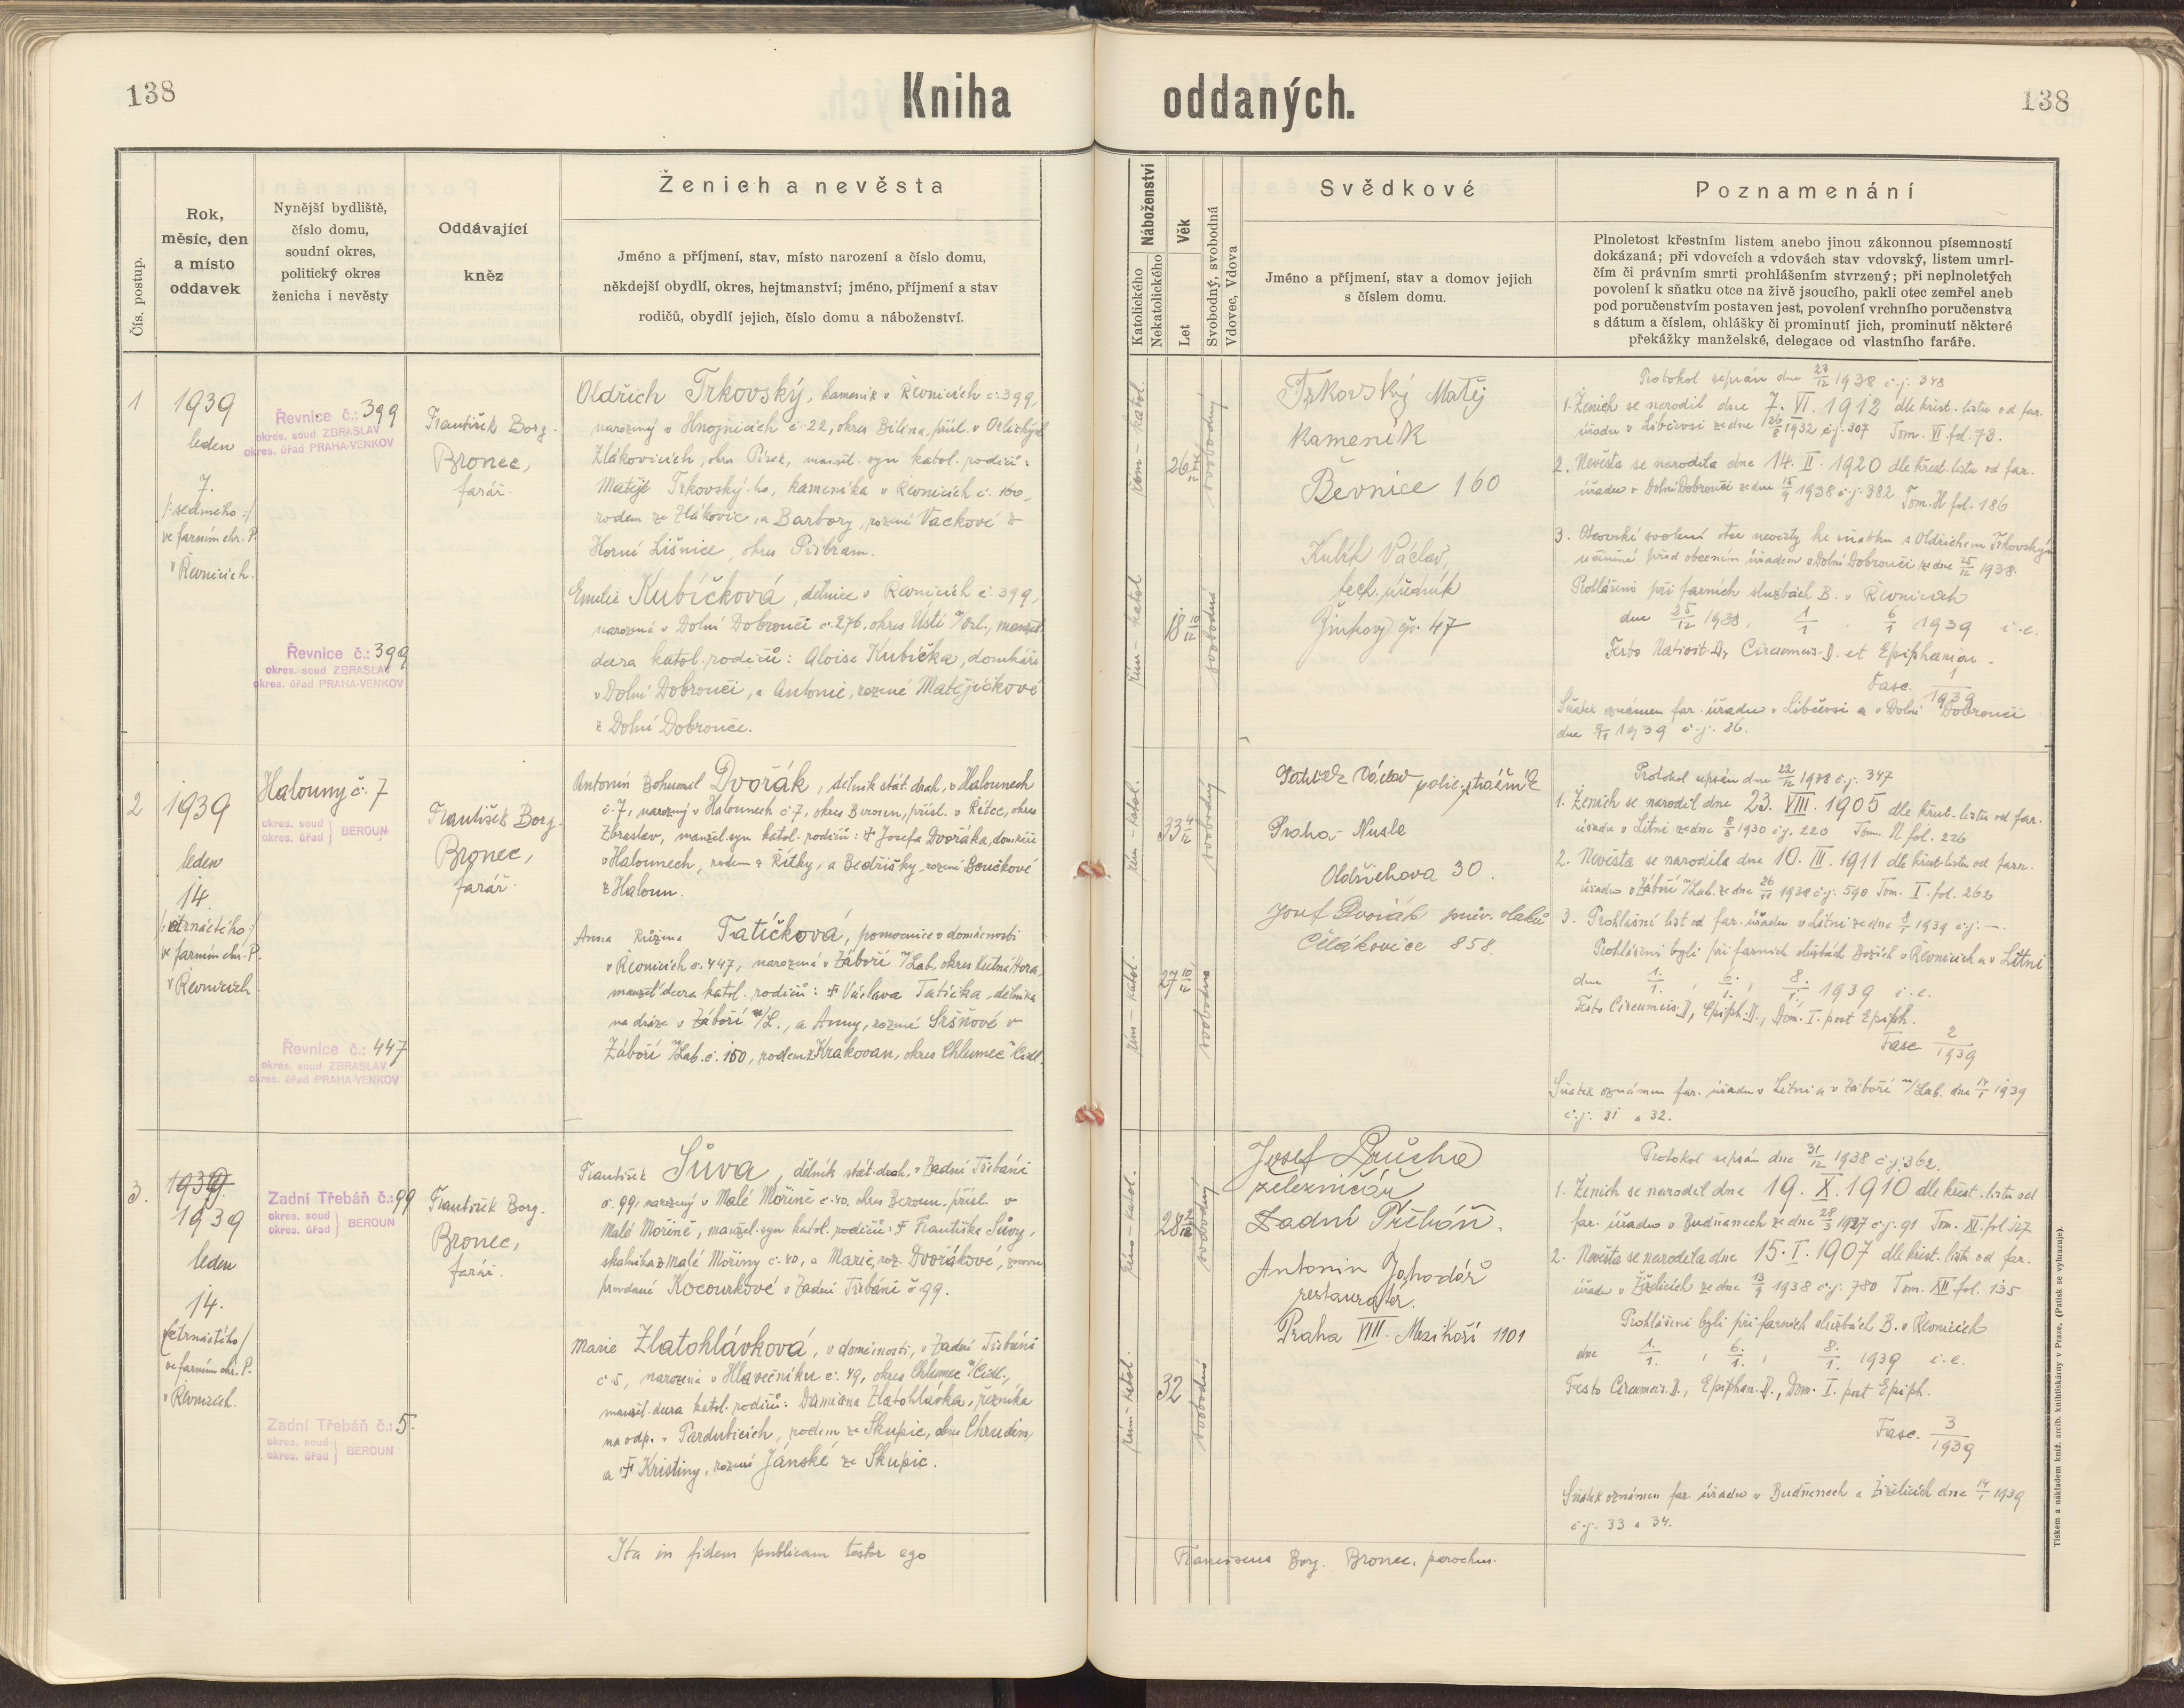 138
Kniha oddaných.
138
Čís. postup.
Rok,
měsíc, den
a místo
oddavek
Nynější bydliště,
číslo domu,
soudní okres,
politický okres
ženicha i nevěsty
Oddávající
kněz
Ženich a nevěsta
Jméno a příjmení, stav, místo narození a číslo domu,
někdejší obydlí, okres, hejtmanství; jméno, příjmení a stav
rodičů, obydlí jejich, číslo domu a náboženství.
Náboženství
Katolického
Nekatolického
Věk
Let
Svobodný, svobodná
Vdovec, Vdova
Svědkové
Jméno a příjmení, stav a domov jejich
s číslem domu.
Poznamenání
Plnoletost křestním listem anebo jinou zákonnou písemností
dokázaná; při vdovcích a vdovách stav vdovský, listem umrl-
čím či právním smrti prohlášením stvrzený; při neplnoletých
povolení k sňatku otce na živě jsoucího, pakli otec zemřel aneb
pod poručenstvím postaven jest, povolení vrchního poručenstva
s dátum a číslem, ohlášky či prominutí jich, prominutí některé
překážky manželské, delegace od vlastního faráře.
1
1939
leden
7.
/: sedmého :/
ve farním chr. P.
v Řevnicích.
Řevnice č.: 399
okres. soud ZBRASLAV
okres. úřad PRAHA-VENKOV
Řevnice č.: 399
okres. soud ZBRASLAV
okres. úřad PRAHA-VENKOV
František Borg.
Bronec,
farář.
Oldřich Trkovský, kameník v Řevnicích č. 399,
narozený v Hnojnicích č. 22, okres Bílina, přísl. v Orlických
Zlákovicích, okres Písek, manžel. syn katol. rodičů:
Matěje Trkovský-ho, kameníka v Řevnicích č. 160,
rodem ze Zlákovic, a Barbory, rozené Vackové z
Horní Lišnice, okres Příbram.
Emilie Kubíčková, dělnice v Řevnicích č. 399,
narozená v Dolní Dobrouči č. 276, okres Ústí n/Orl., manžel.
dcera katol. rodičů: Aloise Kubíčka, domkáře
v Dolní Dobrouči, a Antonie, rozené Matějíčkové
z Dolní Dobrouče.
řím – katol.
26
svobodný
řím – katol
18 11/12
svobodná
Trkovský Matěj
Kameník
Řevnice 160
Kubík Václav,
tech. úředník
Žinkovy čp. 47
Protokol sepsán dne 28/12 1938 č.j. 348
1. Ženich se narodil dne 7. VI. 1912 dle křest. listu od far.
úřadu v Libčevsi ze dne 26/8 1932 č.j. 307 Tom. VI. fol. 73.
2. Nevěsta se narodila dne 14. II. 1920 dle křest. listu od far.
úřadu v Dolní Dobrouči ze dne 15/9 1938 č.j. 382 Tom. H fol. 186
3. Otcovské svolení otce nevěsty ke sňatku s Oldřichem Trkovským
učiněné před obecním úřadem v Dolní Dobrouči ze dne 25/12 1938.
Prohlášeni při farních službách B. v Řevnicích
dne 25/12 1938, 1/1 . 6/1 1939 i.e.
Festo Nativit. D., Circumcis. D. et Epiphaniae.
Fasc. 1/1939
Sňatek oznámen far. úřadu v Libčevsi a v Dolní Dobrouči
dne 9/1 1939 č.j. 26.
2
1939
leden
14.
/: čtrnáctého :/
ve farním chr. P.
v Řevnicích
Halouny č. 7
okres. soud
okres. úřad } BEROUN
Řevnice č.: 447
okres. soud ZBRASLAV
okres. úřad PRAHA-VENKOV
František Borg.
Bronec,
farář.
Antonín Bohumil Dvořák, dělník stát. drah, v Halounech
č. 7, narozený v Halounech č. 7, okres Beroun, přísl. v Řitce, okres
Zbraslav, manžel. syn katol. rodičů: † Josefa Dvořáka, domkáře
v Halounech, rodem z Řitky, a Bedřišky, rozené Boučkové
z Haloun.
Anna Růžena Tatíčková, pomocnice v domácnosti
v Řevnicích č. 447, narozená v Záboří n/Lab., okres Kutná Hora,
manžel. dcera katol. rodičů: † Václava Tatíčka, dělníka
na dráze v Záboří n/L., a Anny, rozené Sršňové v
Záboří n/Lab. č. 150, rodem z Krakovan, okres Chlumec n/Cidl.
řím – katol.
33 4/12
svobodný
řím – katol.
27 10/12
svobodná
Václav polic. strážník
Praha - Nusle
Oldřichova 30.
Josef Dvořák prův. vlaků
Čelákovice 858.
Protokol sepsán dne 22/12 1938 č.j. 347
1. Ženich se narodil dne 23. VIII. 1905 dle křest. listu od far.
úřadu v Litni ze dne 8/8 1930 č.j. 220 Tom. N fol. 226
2. Nevěsta se narodila dne 10. III. 1911 dle křest. listu od farn.
úřadu v Záboří n/Lab. ze dne 26/11 1938 č.j. 590 Tom. I. fol. 262
3. Prohlášní list od far. úřadu v Litni ze dne 8/1 1939 č.j. –.
Prohlášeni byli při farních službách Božích v Řevnicích a v Litni
dne 1./1. , 6./1. , 8./1. 1939 i.e.
Festo Circumcis. D., Epiph. D., Dom. I. post Epiph.
Fasc. 2/1939
Sňatek oznámen far. úřadu v Litni a v Záboří n/Lab. dne 14/1 1939
č.j. 31 a 32.
3.
1939.
1939
leden
14.
/čtrnáctého/
ve farním chr. P.
v Řevnicích.
Zadní Třebáň č.: 99
okres. soud
okres. úřad } BEROUN
Zadní Třebáň č.: 5.
okres. soud
okres. úřad } BEROUN
František Borg.
Bronec,
farář.
František Šůva, dělník stát. drah, v Zadní Třebáni
č. 99, narozený v Malé Mořině č. 40. okres Beroun, přísl. v
Malé Mořině, manžel. syn katol. rodičů: † Františka Šůvy,
skalníka z Malé Mořiny č. 40, a Marie, roz. Dvořákové, znovu
provdané Kocourkové v Zadní Třebáni č. 99.
Marie Zlatohlávková, v domácnosti, v Zadní Třebáni
č. 5, narozená v Hlavečníku č. 49, okres Chlumec n/Cidl.,
manžel. dcera katol. rodičů: Damiána Zlatohlávka, řezníka
na odp. v Pardubicích, rodem ze Skupic, okres Chrudim,
a † Kristiny, rozené Jánské ze Skupic.
řím – katol.
28
svobodný
řím – katol.
32
svobodná
Josef Průcha
železničář
Zadní Třebáň.
Antonín Jahodář
restauratér.
Praha VIII. Mezihoří 1101
Protokol sepsán dne 31/12 1938 č.j. 362.
1. Ženich se narodil dne 19. X. 1910 dle křest. listu od
far. úřadu v Budňanech ze dne 28/3 1927 č.j. 91 Tom. XI. fol. 127
2. Nevěsta se narodila dne 15. I. 1907 dle křest. listu od far.
úřadu v Žiželicích ze dne 13/9 1938 č.j. 780 Tom. XII. fol. 135
Prohlášeni byli při farních službách B. v Řevnicích
dne 1./1. , 6./1. , 8./1. 1939 i.e.
Festo Circumcis. D., Epiphan. D., Dom. I. post Epiph.
Fasc. 3/1939
Sňatek oznámen far. úřadu v Budňanech a Žiželicích dne 14/1 1939
č.j. 33 a 34.
Ita in fidem publicam testor ego Franciscus Borg. Bronec, parochus.
Tiskem a nákladem kníž. arcib. knihtiskárny v Praze. (Patisk se vyhrazuje).